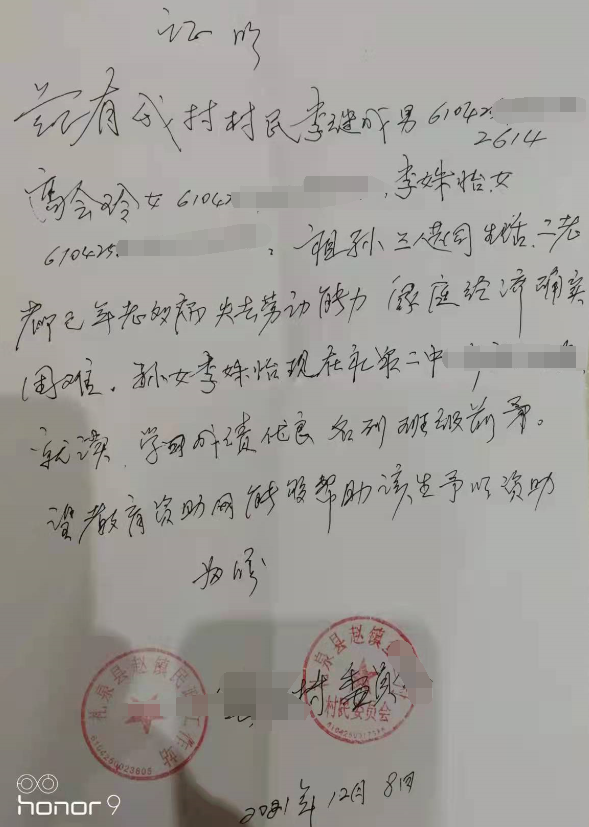 证明
兹有我村村民李继成男610425
2614
高会玲女61042 .李姝怡.女
610425. 。祖孙三人共同生活.二老
都已年老多病失去劳动能力家庭经济确实
困难.孙女李姝怡现在礼泉二中
就读.学习成绩优良名列班级前茅。
望教育资助网能够帮助该生予以资助
为盼
村委会
2021年12月8日
礼泉县赵镇民政工作站
6104250023605
泉县赵镇
村民委员会
honor 9